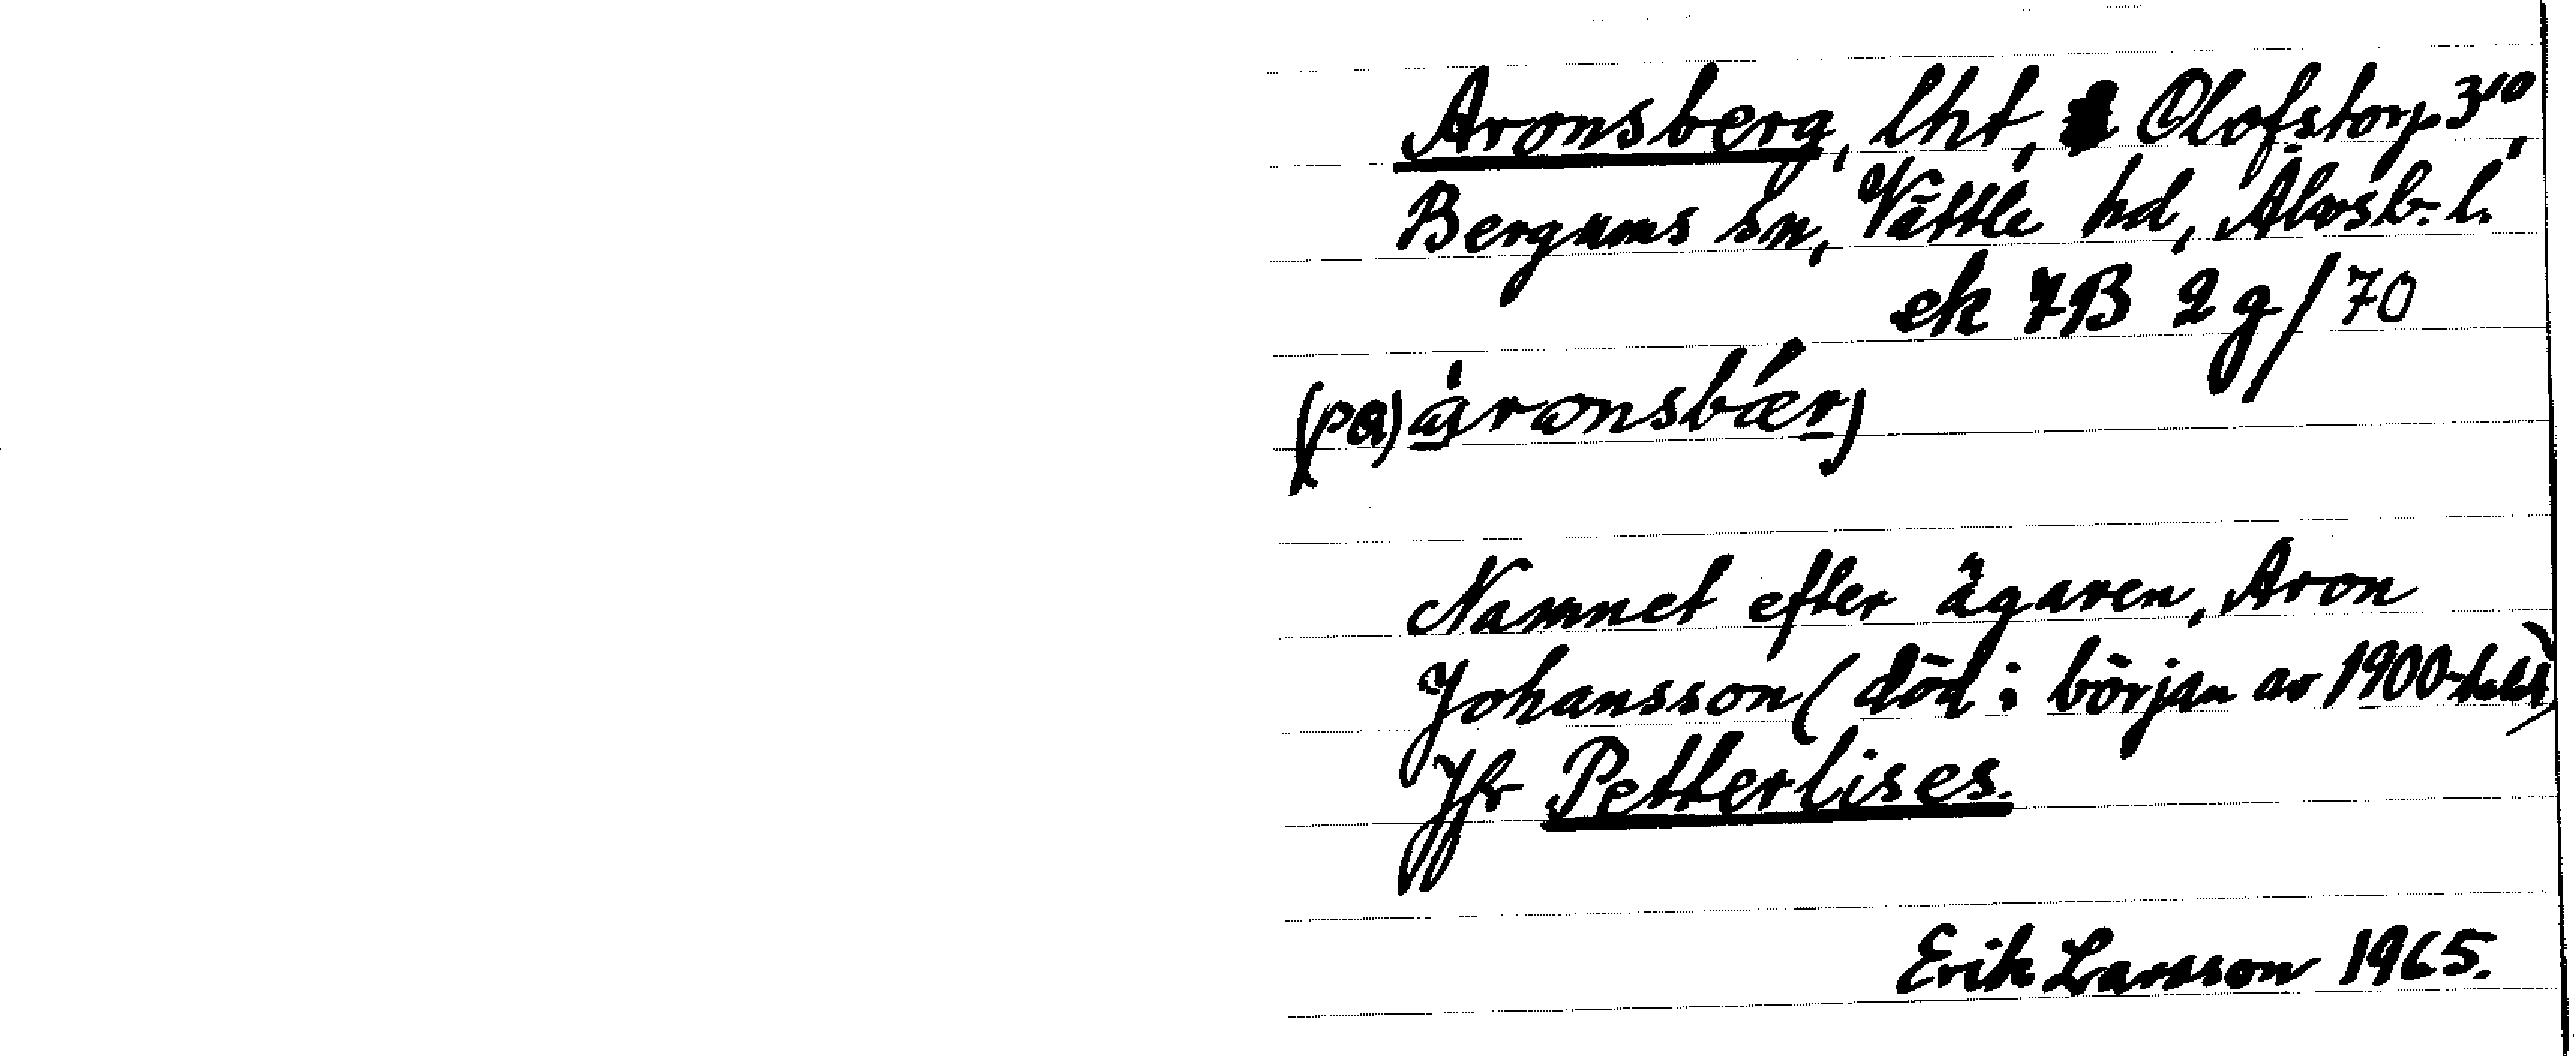 Aronsberg, lht, Olofstorp 3¹⁰,
Bergums sn, Vättle hd, Älvsb. l.
ek 7B 2g/70
(pa) àronsbær)
Namnet efter ägaren, Aron
Johansson (död i början av 1900-talet)
Jfr Petterlises.
Erik Larsson 1965.